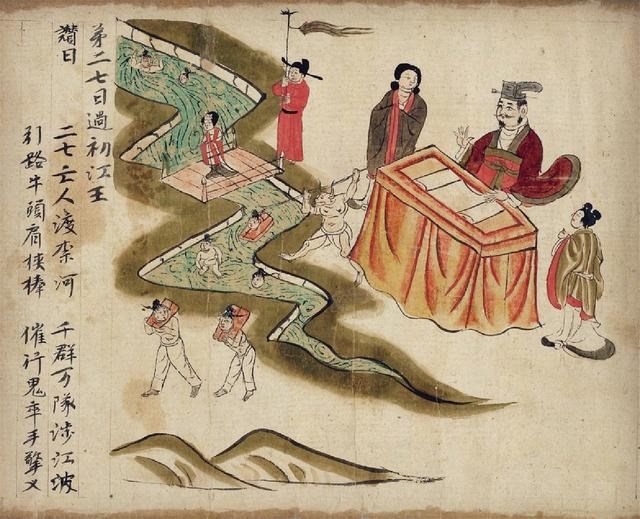 第二七日過初江王
讃曰 二七亡人渡奈河 千群万隊涉江波
引路牛頭肩挾棒 催行鬼卒手擎叉